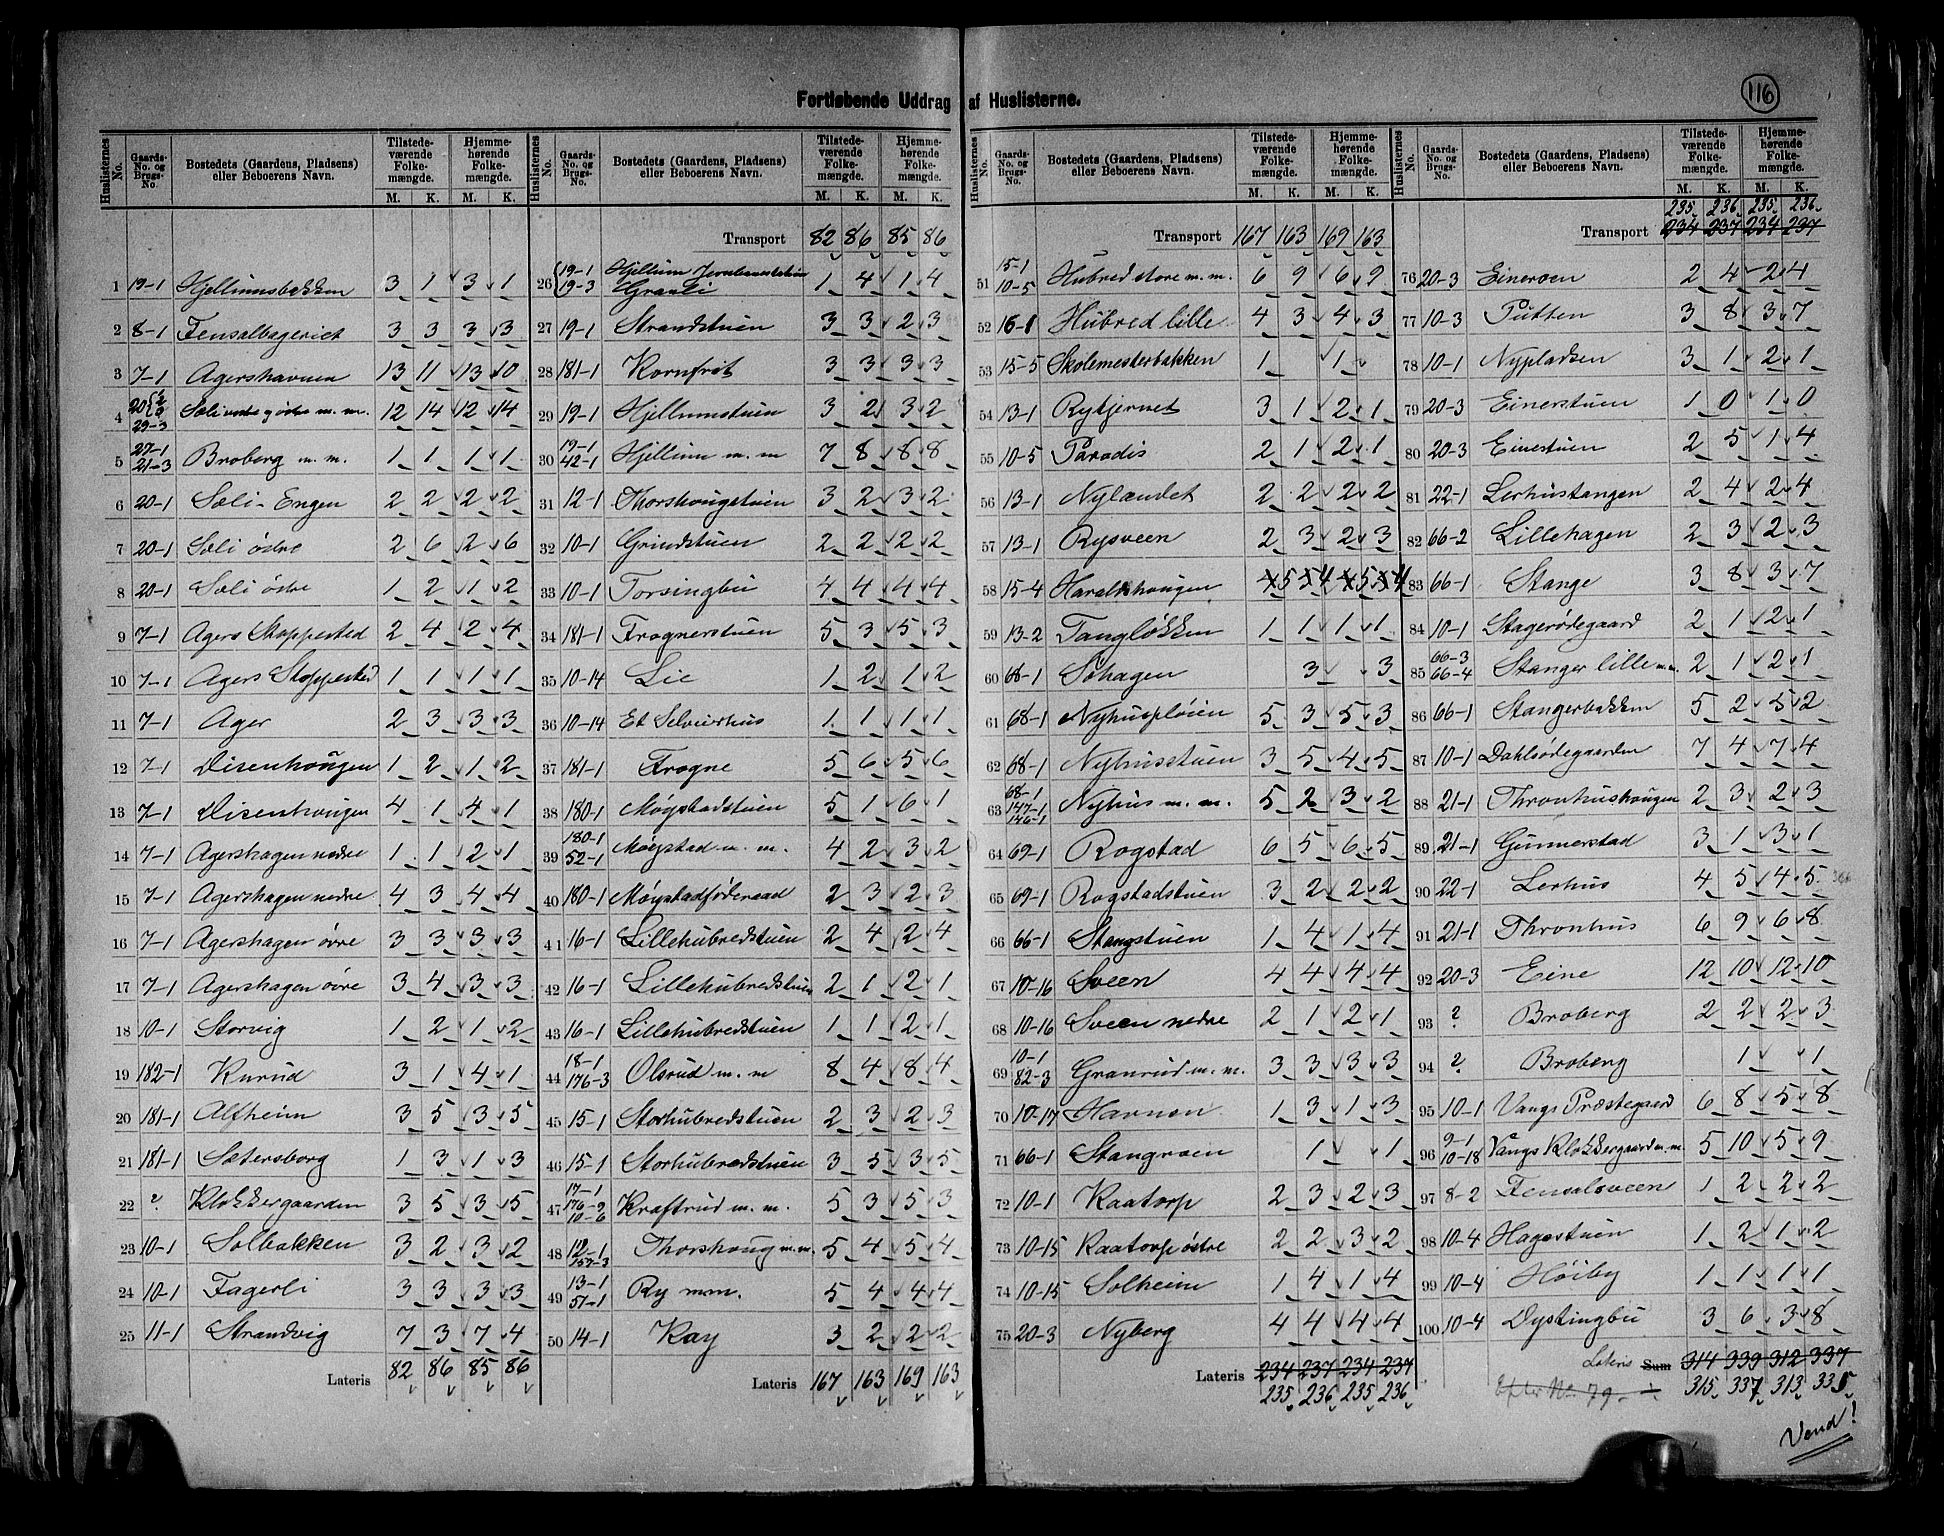 116
Fortløbende Uddrag af Huslisterne.
Huslisternes No. Gaards-No. og Brugs-No. Bostedets (Gaardens, Pladsens) eller Beboerens Navn. Tilstedeværende Folkemængde. M. K. Hjemmehørende Folkemængde. M. K.
1 19-1 Hjellumsbakken 3 1 3 1
2 8-1 Fensalbageriet 3 3 3 3
3 7-1 Agershavnen 13 11 13 10
4 29-3 m. m. 12 14 12 14
5 27-1 21-3 Broberg m. m. 1 1 1 1
6 20-1 Sæli-Engen 2 2 2 2
7 20-1 Sæli østre 2 6 2 6
8 20-1 Sæli østre 1 2 1 2
9 7-1 Agers Stoppested 2 4 2 4
10 7-1 Agers Stoppested 1 1 1 1
11 7-1 Ager 2 3 3 3
12 7-1 Disenhougen 1 2 1 2
13 7-1 Disenhougen 4 1 4 1
14 7-1 Agershagen nedre 1 1 2 1
15 7-1 Agershagen nedre 4 3 4 4
16 7-1 Agershagen øvre 3 3 3 3
17 7-1 Agershagen øvre 3 4 3 3
18 10-1 Storvig 1 2 1 2
19 182-1 Kurud 3 1 4 1
20 181-1 Altheim 3 5 3 5
21 181-1 Sætersborg 1 3 1 3
22 ? Klokkergaarden 3 5 3 5
23 10-1 Solbakken 3 2 3 2
24 10-1 Fagerli 3 3 3 3
25 11-1 Strandvig 7 3 7 4
Lateris 82 86 85 86
Huslisternes No. Gaards-No. og Brugs-No. Bostedets (Gaardens, Pladsens) eller Beboerens Navn. Tilstedeværende Folkemængde. M. K. Hjemmehørende Folkemængde. M. K.
Transport 82 86 85 86
26 19-1 19-3 Hjellum Jernbanestation Granli 1 4 1 4
27 19-1 Strandstuen 3 3 2 3
28 181-1 Kornfrit 3 3 3 3
29 19-1 Hjellumstuen 3 2 3 2
30 19-1 42-1 Hjellum m. m 7 8 8 8
31 12-1 Thorshougstuen 3 2 3 2
32 10-1 Grindstuen 2 2 2 2
33 10-1 Torsingbu 4 4 4 4
34 181-1 Frognerstuen 5 3 5 3
35 10-14 Lie 1 2 1 2
36 10-14 Et Selveierhus 1 1 1 1
37 181-1 Frogne 5 6 5 6
38 180-1 Møystadstuen 5 1 6 1
39 180-1 52-1 Møystad m. m. 4 2 3 2
40 180-1 Møystadføderaad 2 3 2 3
41 16-1 Lillehubredstuen 2 4 2 4
42 16-1 Lillehubredstuen 2 1 2 1
43 16-1 Lillehubredstuen 1 1 2 1
44 18-1 176-3 Olsrud m. m 8 4 8 4
45 15-1 Storhubredstuen 2 3 2 3
46 15-1 Storhubredstuen 3 5 3 5
47 17-1 176-2 10-6 Kraftrud m. m. 5 3 5 3
48 12-1 Thorshoug m. m. 5 4 5 4
49 13-1 51-1 Ry m m. 5 4 4 4
50 14-1 Kay 3 2 2 2
Lateris 167 163 169 163
Huslisternes No. Gaards-No. og Brugs-No. Bostedets (Gaardens, Pladsens) eller Beboerens Navn. Tilstedeværende Folkemængde. M. K. Hjemmehørende Folkemængde. M. K.
Transport 167 163 169 163
51 15-1 10-5 Hubred store m. m. 6 9 6 9
52 16-1 Hubred lille 4 3 4 3
53 15-5 Skolemesterbakken 1 1
54 13-1 Rytjernet 3 1 2 1
55 10-5 Paradis 2 1 2 1
56 13-1 Nylændet 2 2 2 2
57 13-1 Rysveen 2 3 2 3
58 15-4 Haralkhougen 4 5 5 4 4 5 5 4
59 13-2 Tangløkken 1 1 1 1
60 68-1 Søhagen 3 3
61 68-1 Nyhuspløien 5 3 5 3
62 68-1 Nyhusstuen 3 5 4 5
63 68-1 147-1 146-1 Nyhus m. m. 5 2 3 2
64 69-1 Rogstad 6 5 6 5
65 69-1 Rogstadstuen 3 2 2 2
66 66-1 Stangstuen 1 4 1 4
67 10-16 Sveen 4 4 4 4
68 10-16 Sveen nedre 2 1 2 1
69 10-1 82-3 Granrud m. m. 3 3 3 3
70 10-17 Havnen 1 3 1 3
71 66-1 Stangroen 1 1
72 10-1 Kaatorp 2 3 2 3
73 10-15 Kaatorp østre 2 2 3 2
74 10-15 Solheim 1 4 1 4
75 20-3 Nyberg 4 4 4 4
Lateris 234 237 234 237
235 236 235 236
Huslisternes No. Gaards-No. og Brugs-No. Bostedets (Gaardens, Pladsens) eller Beboerens Navn. Tilstedeværende Folkemængde. M. K. Hjemmehørende Folkemængde. M. K.
235 236 235 236
Transport 234 237 234 237
76 20-3 Eineroen 2 4 2 4
77 10-3 Putten 3 8 3 7
78 10-1 Nypladsen 3 1 2 1
79 20-3 Einerstuen 1 0 1 0
80 20-3 Einestuen 2 5 1 4
81 22-1 Lerhustangen 2 4 2 4
82 66-2 Lillehagen 2 3 2 3
83 66-1 Stange 3 8 3 7
84 10-1 Stagerødegaard 2 1 2 1
85 66-3 66-4 Stanger lille m. m. 2 1 2 1
86 66-1 Stangerbakken 5 2 5 2
87 10-1 Dahlsødegaarden 7 4 7 4
88 21-1 Thronhushougen 2 3 2 3
89 21-1 Gunnerstad 3 1 3 1
90 22-1 Lerhus 4 5 4 5
91 21-1 Thronhus 6 9 6 8
92 20-3 Eine 12 10 12 10
93 ? Broberg 2 2 2 3
94 ? Broberg 1 1
95 10-1 Vangs Præstegaard 6 8 5 8
96 9-1 10-18 Vangs Klokkergaard m. m. 5 10 5 9
97 8-2 Fensalsveen 1 2 2 2
98 10-4 Hagestuen 1 2 1 2
99 10-4 Høiby 1 1 1 1
100 10-4 Dystingbu 3 6 3 8
Lateris Sum 314 339 312 337
Efter No. 79. 315 337 313 335
Vend!